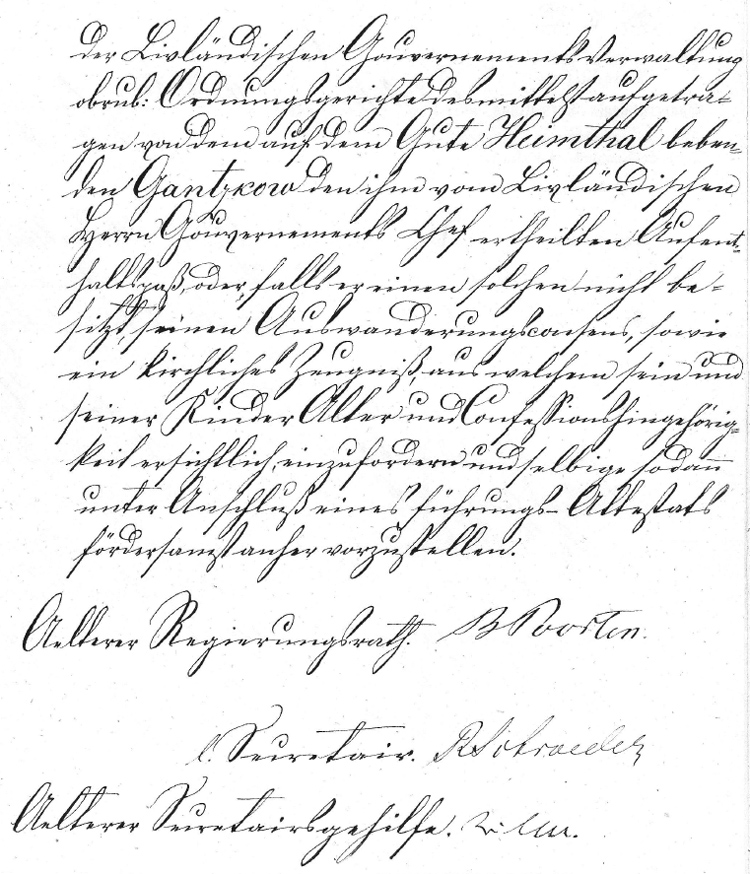 der Livländischen Gouvernements Verwaltung
obrub: Ordnungsgerichte desmittelst aufgetra-
gen von dem auf dem Gute Heimthal leben-
den Gantzkow den ihm vom Livländischen
Herrn Gouvernements Chef ertheilten Aufent-
haltspaß, oder, falls er einen solchen nicht be-
sitzt, seinen Auswanderungsconsens, sowie
ein kirchliches Zeugniß, aus welchem sein und
seiner Kinder Alter und Confessionshingehörig-
keit ersichtlich, einzufordern und selbige sodann
unter Anschluß eines Führungs-Attestats
fördersamst anher vorzustellen.
Aelterer Regierungsrath. B Poorten.
l. Secretair. R Schroeder
Aelterer Secretairsgehilfe.